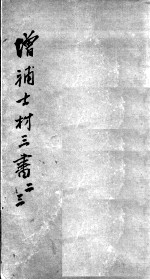 增補士材三書 二三